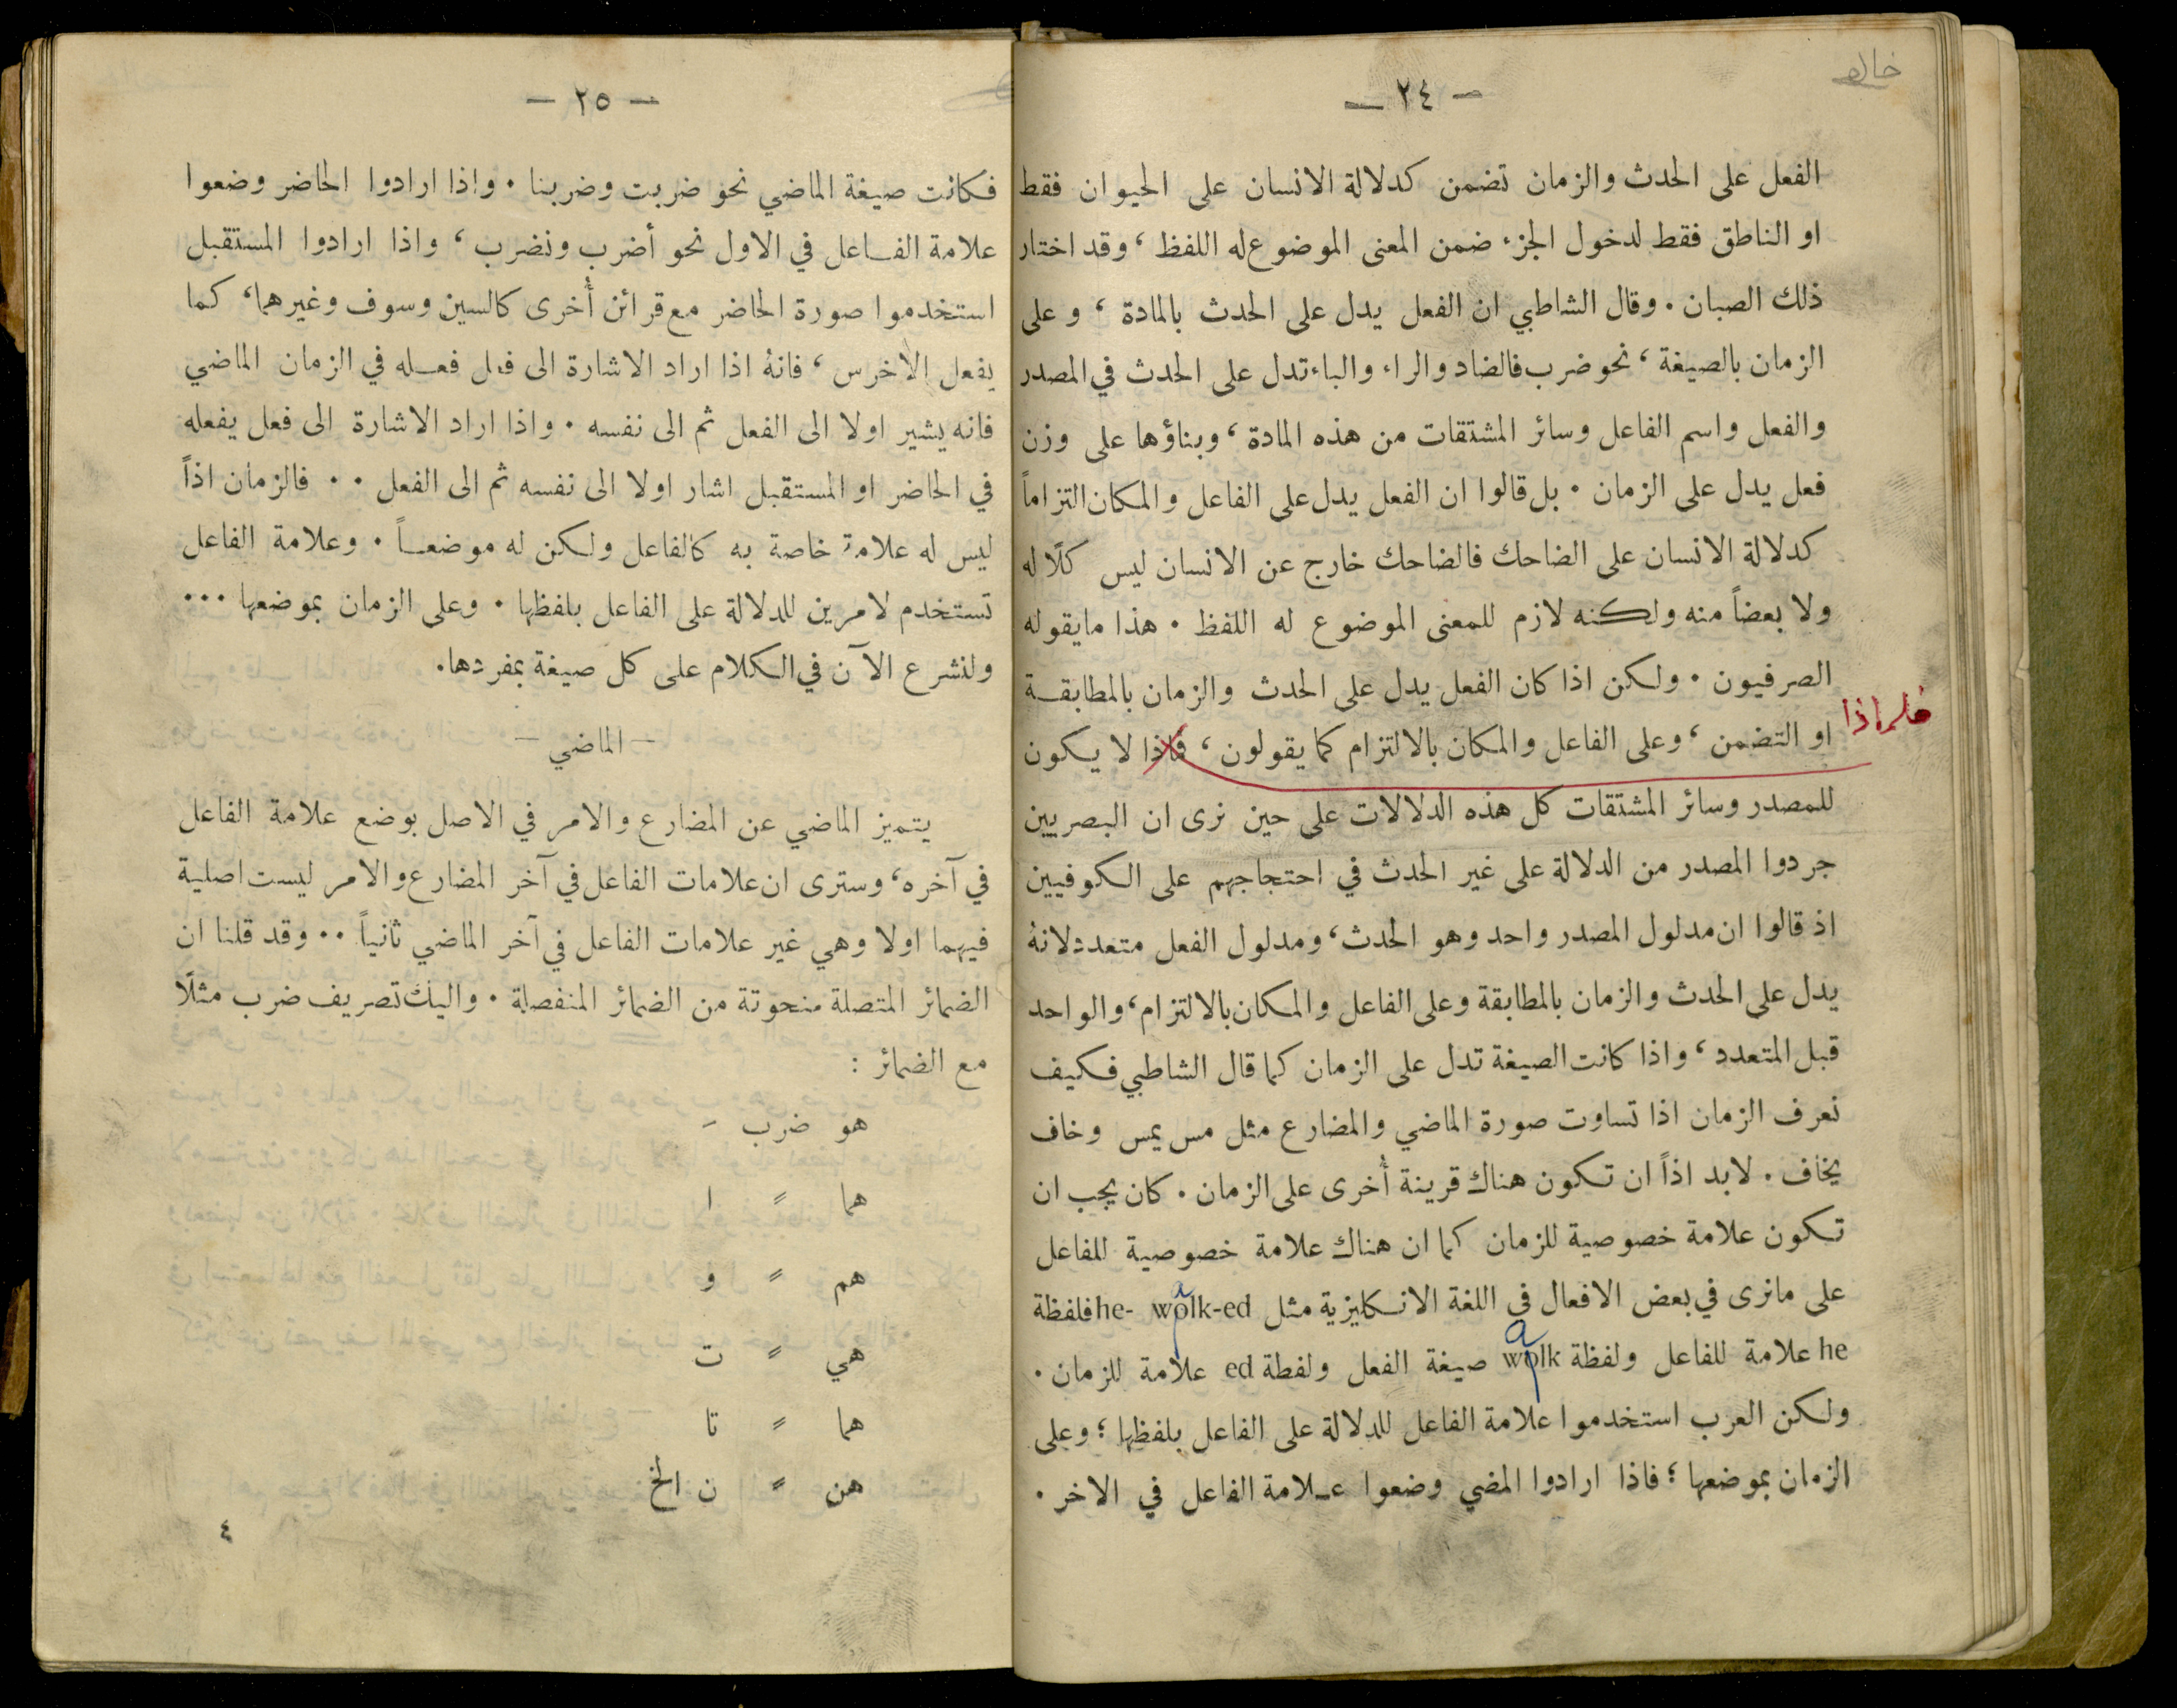 خالد
— ٢٤ —
الفعل على الحدث والزمان تضمن كدلالة الانسان على الحيوان فقط
او الناطق فقط لدخول الجزء ضمن المعنى الموضوع له اللفظ ، وقد اختار
ذلك الصبان . وقال الشاطبي ان الفعل يدل على الحدث بالمادة ، وعلى
الزمان بالصيغة ، نحو ضرب فالضاد والراء والباء تدل على الحدث في المصدر
والفعل واسم الفاعل وسائر المشتقات من هذه المادة ، وبناؤها على وزن
فعل يدل على الزمان . بل قالوا ان الفعل يدل على الفاعل والمكان التزاماً
كدلالة الانسان على الضاحك فالضاحك خارج عن الانسان ليس كلًا له
ولا بعضاً منه ولكنه لازم للمعنى الموضوع له اللفظ . هذا ما يقوله
الصرفيون . ولكن اذا كان الفعل يدل على الحدث والزمان بالمطابقة
فلماذا
او التضمن ، وعلى الفاعل والمكان بالالتزام كما يقولون ، فاذا لا يكون
للمصدر وسائر المشتقات كل هذه الدلالات على حين نرى ان البصريين
جردوا المصدر من الدلالة على غير الحدث في احتجاجهم على الكوفيين
اذ قالوا ان مدلول المصدر واحد وهو الحدث ، ومدلول الفعل متعدد لانهُ
يدل على الحدث والزمان بالمطابقة وعلى الفاعل والمكان بالالتزام ، والواحد
قبل المتعدد ، واذا كانت الصيغة تدل على الزمان كما قال الشاطبي فكيف
نعرف الزمان اذا تساوت صورة الماضي والمضارع مثل مس يمس وخاف
يخاف . لابد اذاً ان تكون هناك قرينة أُخرى على الزمان . كان يجب ان
تكون علامة خصوصية للزمان كما ان هناك علامة خصوصية للفاعل
على مانرى في بعض الافعال في اللغة الانكليزية مثل he- wolk-ed فلفظة
he علامة للفاعل ولفظة wolk صيغة الفعل ولفظة ed علامة للزمان .
ولكن العرب استخدموا علامة الفاعل للدلالة على الفاعل بلفظها ؛ وعلى
الزمان بموضعها ؛ فاذا ارادوا المضي وضعوا عـلامة الفاعل في الاخر .
— ٢٥ —
فكانت صيغة الماضي نحو ضربت وضربنا . واذا ارادوا الحاضر وضعوا
علامة الفـاعل في الاول نحو أضرب ونضرب ، واذا ارادوا المستقبل
استخدموا صورة الحاضر مع قرائن أُخرى كالسين وسوف وغيرهما ، كما
يفعل الاخرس ، فانهُ اذا اراد الاشارة الى فعل فعـله في الزمان الماضي
فانه يشير اولا الى الفعل ثم الى نفسه . واذا اراد الاشارة الى فعل يفعله
في الحاضر او المستقبل اشار اولا الى نفسه ثم الى الفعل . . فالزمان اذاً
ليس له علامة خاصة به كالفاعل ولكن له موضعـاً . وعلامة الفاعل
تستخدم لامرين للدلالة على الفاعل بلفظها . وعلى الزمان بموضعها ...
ولنشرع الآن في الكلام على كل صيغة بمفردها .
— الماضي —
يتميز الماضي عن المضارع والامر في الاصل بوضع علامة الفاعل
في آخره ، وسترى ان علامات الفاعل في آخر المضارع والامر ليست اصلية
فيهما اولا وهي غير علامات الفاعل في آخر الماضي ثانياً .. وقد قلنا ان
الضمائر المتصلة منحوتة من الضمائر المنفصلة . واليك تصريف ضرب مثلًا
مع الضمائر :
هو ضرب -
هما = ا
هم = و
هي = ت
هما = تا
هن = ن الخ
٤
a
a